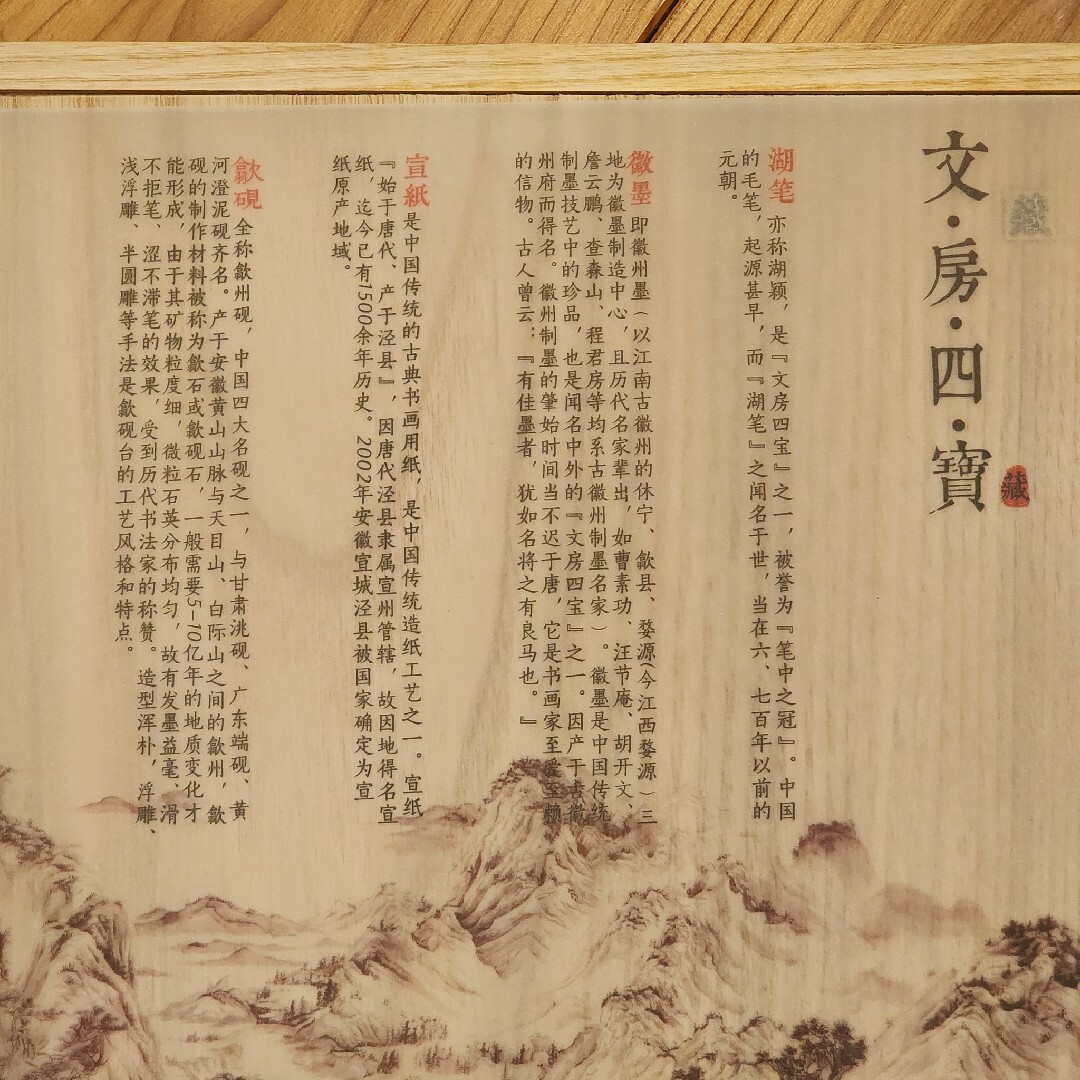 文·房·四·寶
藏
湖笔 亦称湖颖，是『文房四宝』之一，被誉为『笔中之冠』。中国
的毛笔，起源甚早，而『湖笔』之闻名于世，当在六、七百年以前的
元朝。
徽墨 即徽州墨（以江南古徽州的休宁、歙县、婺源(今江西婺源）三
地为徽墨制造中心，且历代名家辈出，如曹素功、汪节庵、胡开文、
詹云鹏、查森山、程君房等均系古徽州制墨名家）。徽墨是中国传统
制墨技艺中的珍品，也是闻名中外的『文房四宝』之一。因产于古徽
州府而得名。徽州制墨的肇始时间当不迟于唐，它是书画家至爱至赖
的信物。古人曾云：『有佳墨者，犹如名将之有良马也。』
宣紙 是中国传统的古典书画用纸，是中国传统造纸工艺之一。宣纸
『始于唐代、产于泾县』，因唐代泾县隶属宣州管辖，故因地得名宣
纸，迄今已有1500余年历史。2002年安徽宣城泾县被国家确定为宣
纸原产地域。
歙硯 全称歙州砚，中国四大名砚之一，与甘肃洮砚、广东端砚、黄
河澄泥砚齐名。产于安徽黄山山脉与天目山、白际山之间的歙州，歙
砚的制作材料被称为歙石或歙砚石，一般需要5-10亿年的地质变化才
能形成，由于其矿物粒度细，微粒石英分布均匀，故有发墨益毫、滑
不拒笔、涩不滞笔的效果，受到历代书法家的称赞。造型浑朴，浮雕、
浅浮雕、半圆雕等手法是歙砚台的工艺风格和特点。